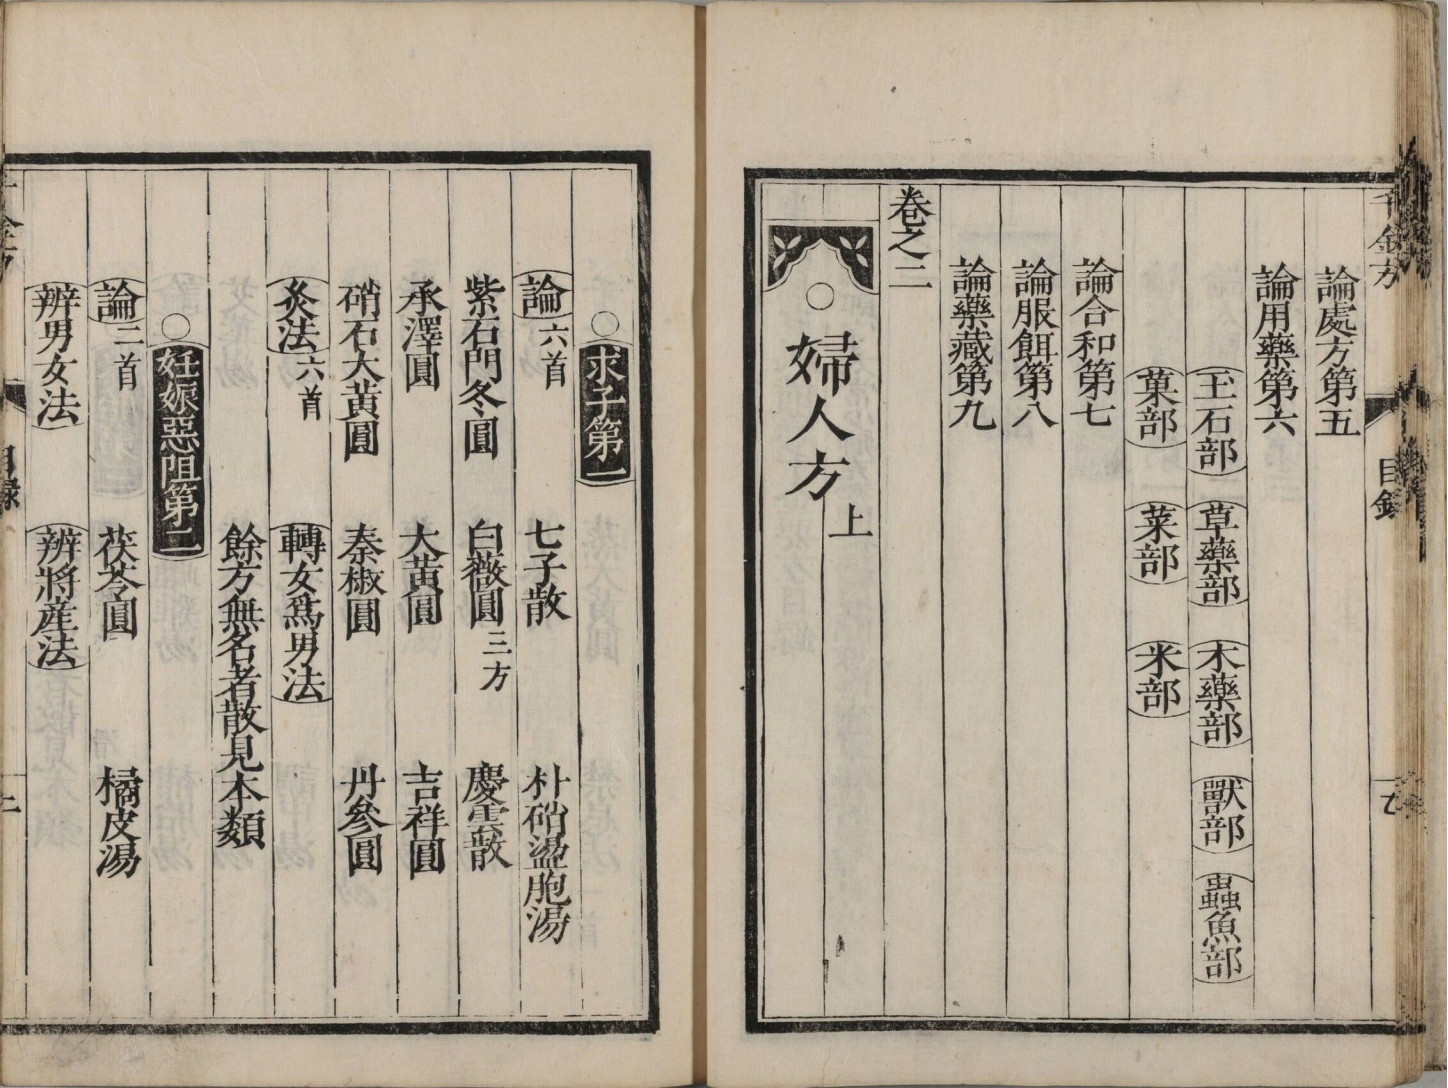 千金方 目録 七
論處方第五
論用藥第六
玉石部 草藥部 木藥部 獸部 蟲魚部
菓部 菜部 米部
論合和第七
論服餌第八
論藥藏第九
卷之二
○婦人方上
○求子第一
論六首 七子散 朴硝盪胞湯
紫石門冬圓 白薇圓三方 慶雲散
承澤圓 大黃圓 吉祥圓
硝石大黃圓 秦椒圓 丹參圓
灸法六首 轉女爲男法
餘方無名者散見本類
○妊娠惡阻第二
論二首 茯苓圓 橘皮湯
辨男女法 辨將産法